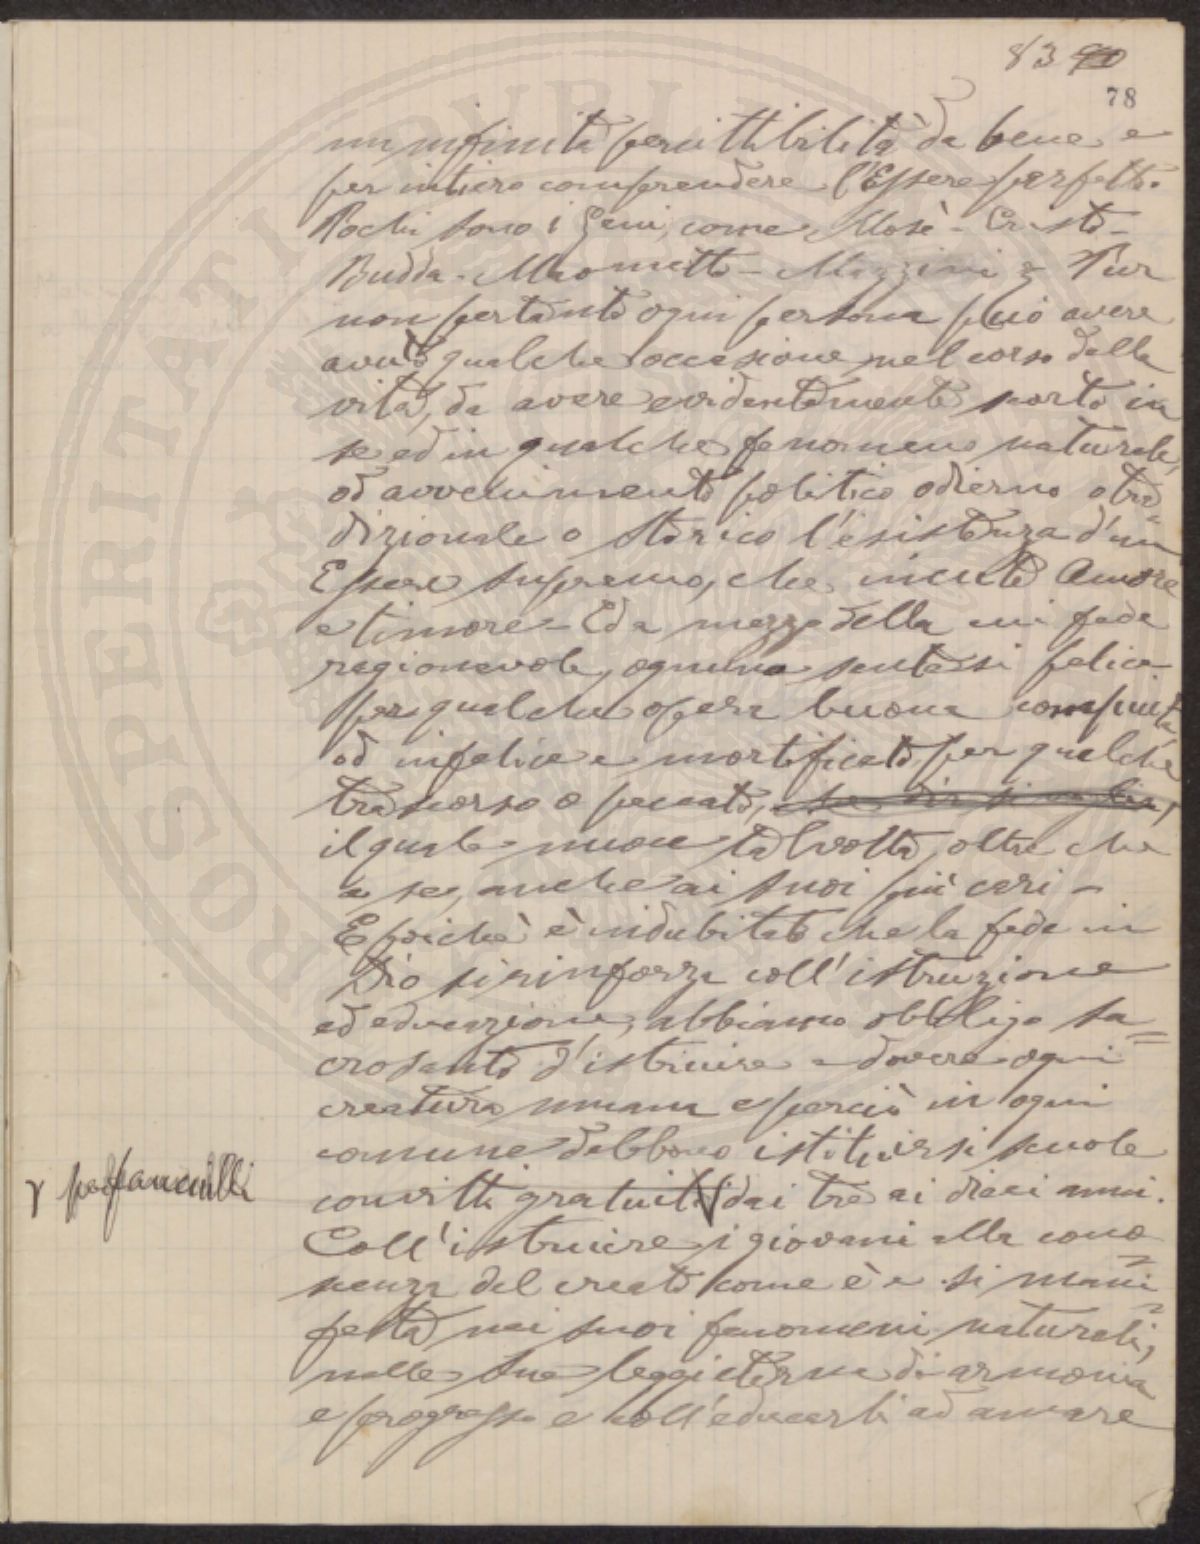 83 90
78
un infinita percettibilità da bene e
per intiero comprendere l'Essere perfetto.
Pochi sono i Geni, come Mosè - Cristo -
Budda - Maometto - Mazzini & Pur
non pertanto ogni persona può avere
avuto qualche occasione nel corso della
vita, da avere evidentemente scorto in
se ed in qualche fenomeno naturale,
od avvenimento politico odierno o tra=
dizionale o storico l'esistenza d'un
Essere supremo, che incute Amore
e timore - Ed a mezzo della cui fede
ragionevole, ognuno sentesi felice
per qualche opera buona compiuta,
od infelice e mortificato per qualche
trascorso o peccato, se dir si voglia,
il quale nuoce talvolta, oltre che
a se, anche ai suoi più cari -
E poichè è indubitato che la fede in
Dio si rinforza coll'istruzione
ed educazione, abbiamo obbligo sa=
crosanto d'istruire a dovere ogni
creatura umana e perciò in ogni
comune debbono istituirsi scuole
convitti gratuiti dai tre ai dieci anni.
γ pei fanciulli
Coll'istruire i giovani alla cono=
scenza del creato come è e si mani=
festa nei suoi fenomeni naturali,
nelle sue leggi eterne di armonia
e progresso e coll'educarli ad amare
PROSPERITATI PUBLICAE